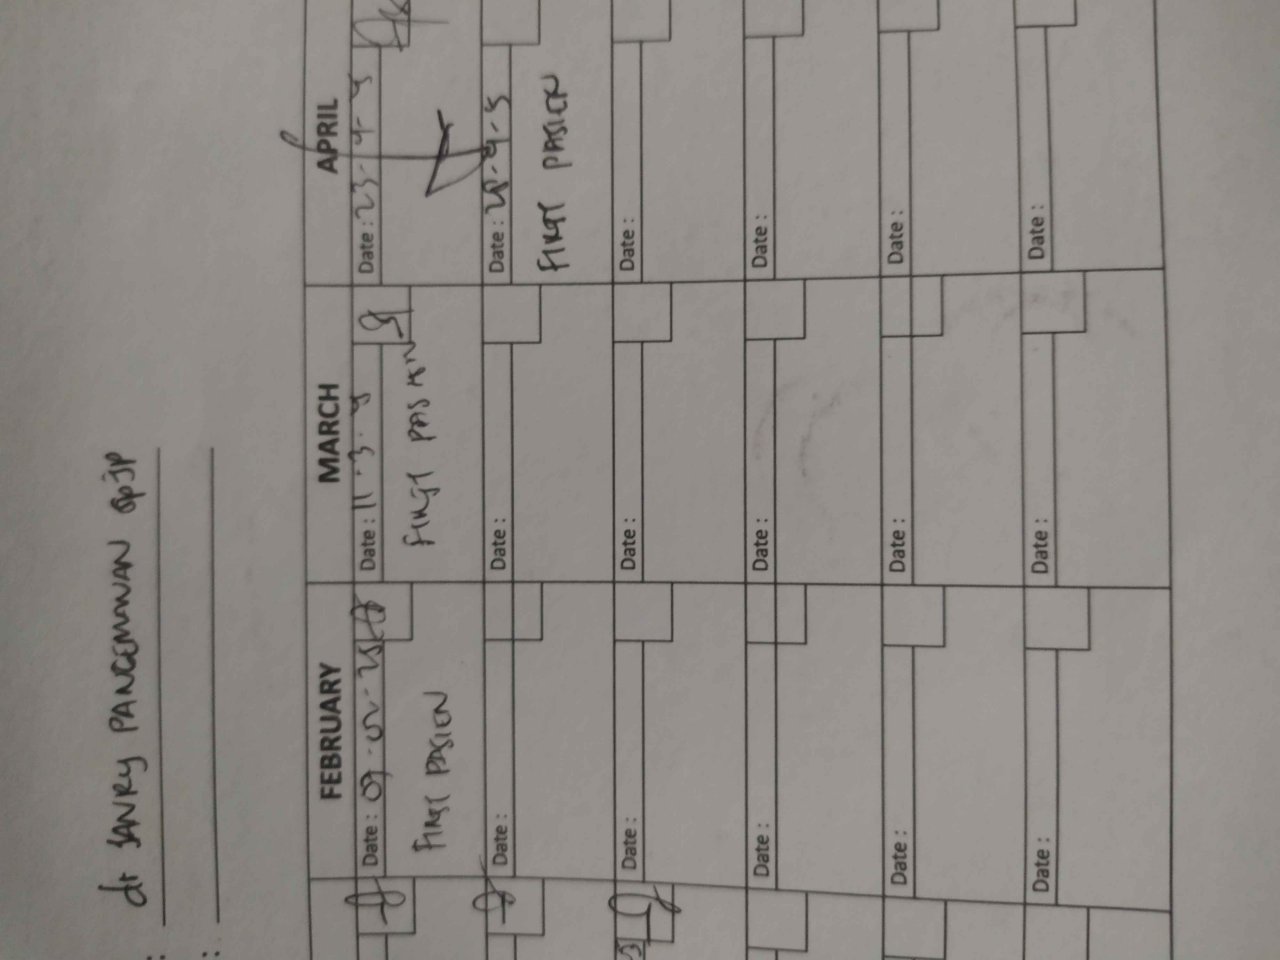 dr SANRY PANGEMANAN SpJP
:
:
FEBRUARY
MARCH
APRIL
Date : 07-02-25
Date : 11.3.
Date : 23-4-
FIRST PASIEN
FIRST PASIEN
Date :
Date :
Date : 28-4-5
FIRST PASIEN
Date :
Date :
Date :
Date :
Date :
Date :
Date :
Date :
Date :
Date :
Date :
Date :